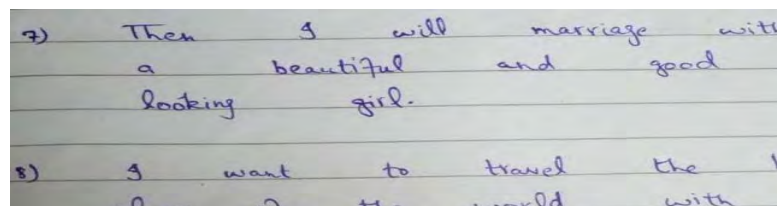 7) Then I will marriage with
a beautiful and good
looking girl.
8) I want to travel the
world with